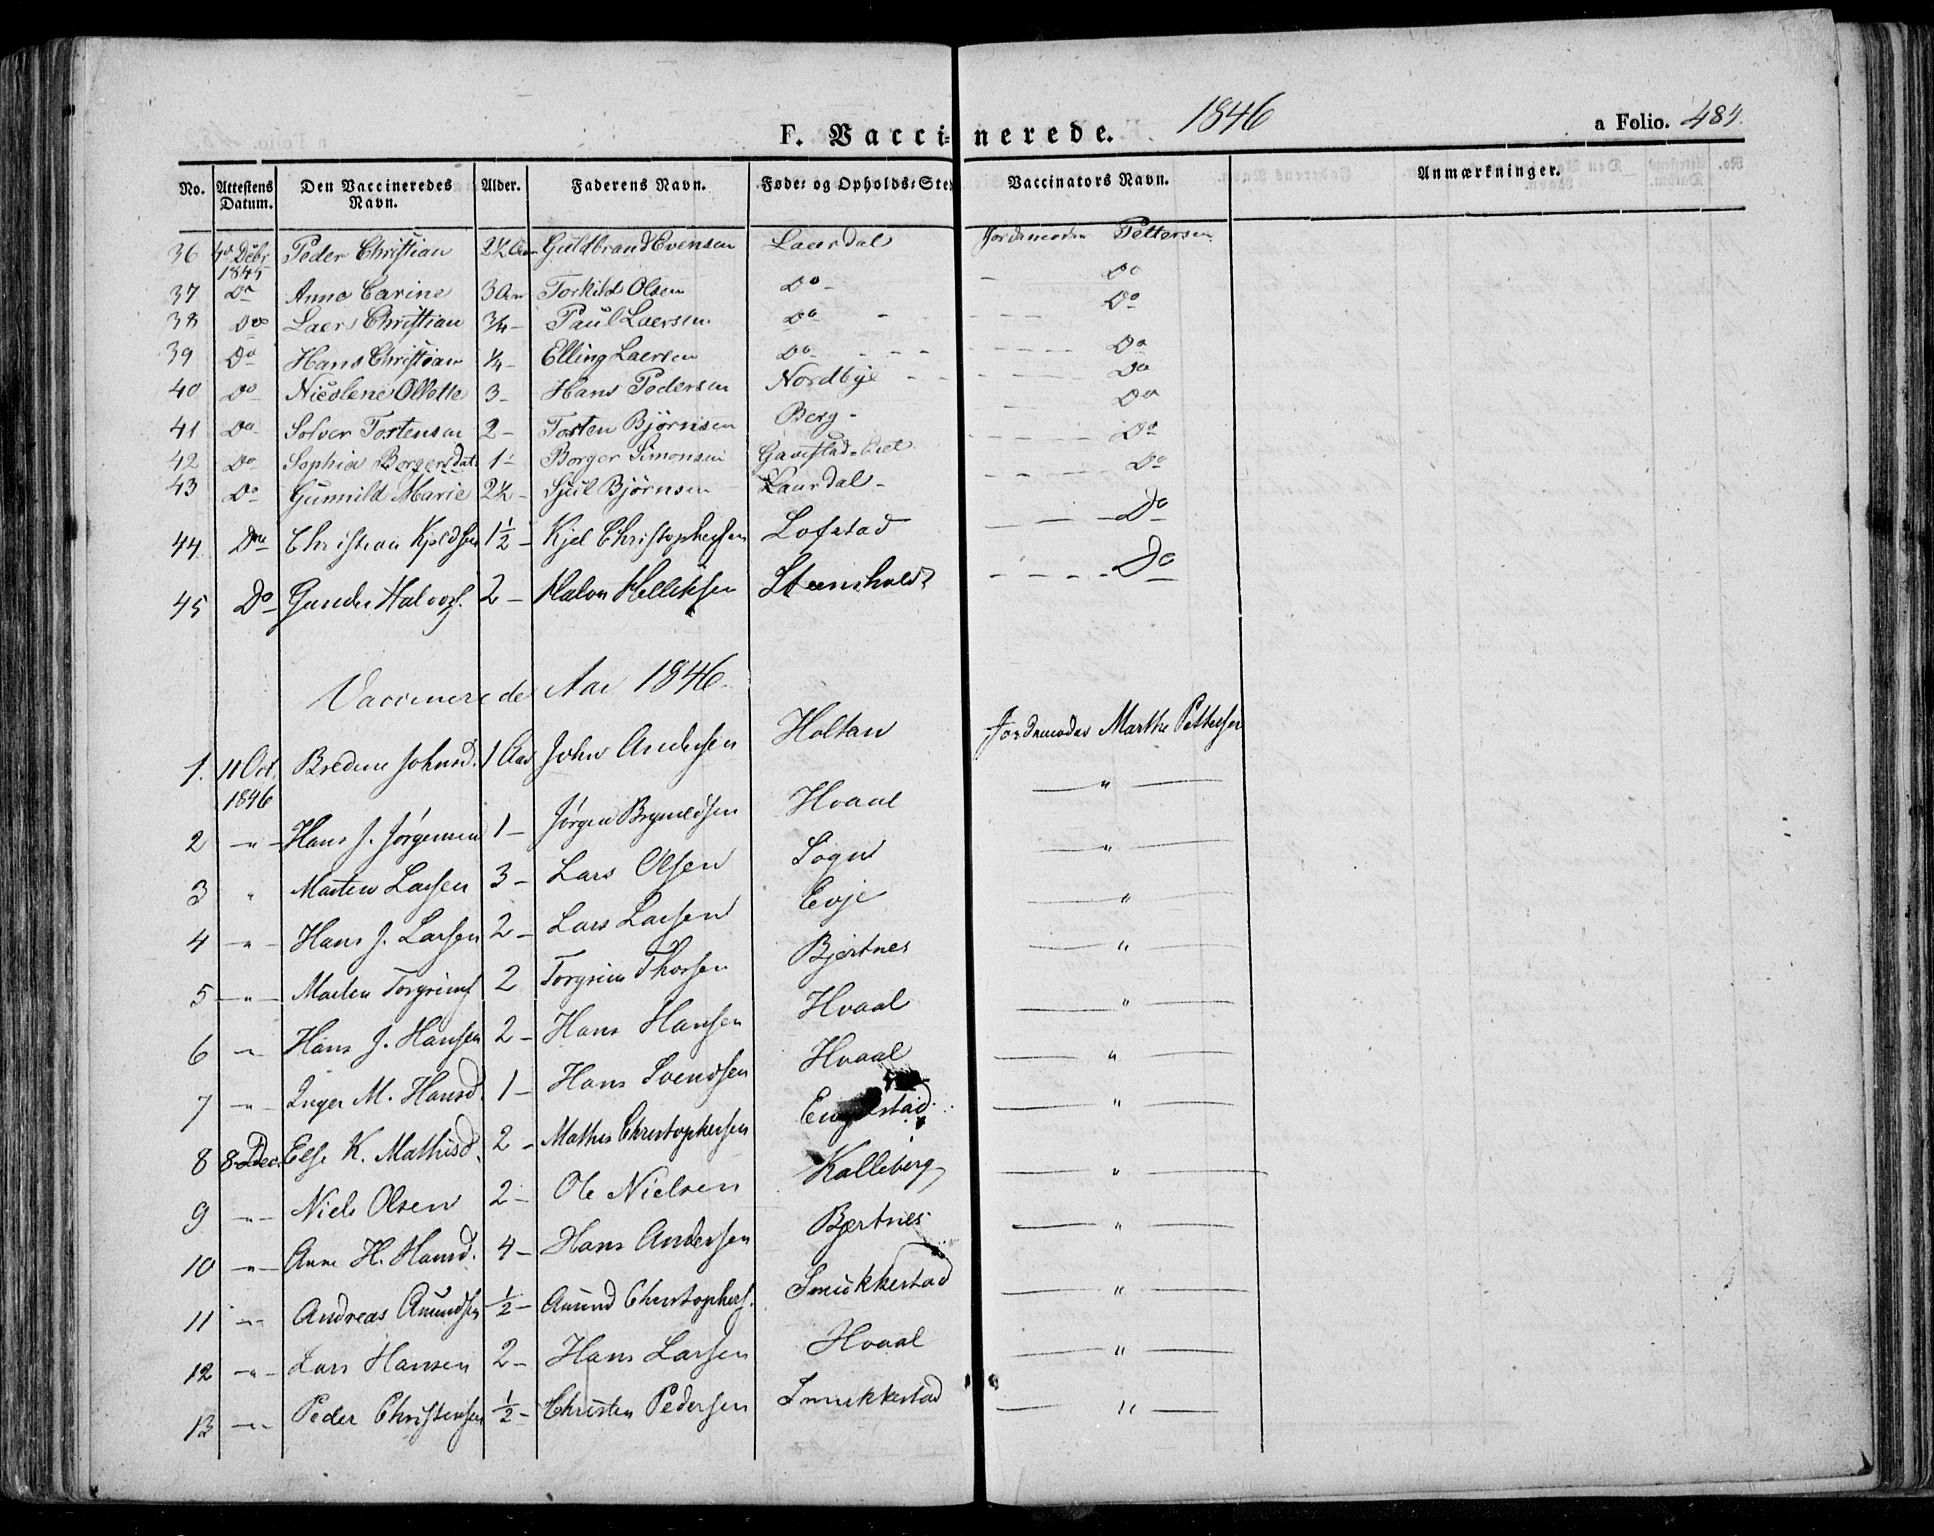 F. Vaccinerede. 1846 a Folio. 484.
No. Attestens Datum. Den Vaccineredes Navn. Alder. Faderens Navn. Føde- og Opholds-Ste Vaccinators Navn. Anmærkninger.
36 4de Debr 1845 Peder Christian 2½ Aar Guldbrand Evensen Laurdal Jordemoder Pettersen
37 Do Anne Carine 3 Aar Torkild Olsen Do - Do
38 Do Laers Christian 3/4 - Paul Laersen Do - Do
39 Do Hans Christian 1/4 - Elling Laersen Do - Do
40 Do Nicolene Olette 3 - Hans Pedersen Nordbye - Do
41 Do Solver Tostensen 2 - Tosten Bjørnsen Berg - Do
42 Do Sophia Borgersdat 1 - Borger Simonsen Do
43 Do Gunnild Marie 2½ - Sjul Bjørnsen Laurdal - Do
44. Do Christian Kjeldsen 1½ - Kjel Christophersen Lofstad Do
45 Do Gunder Halvors. 2 - Halvor Helleksen Steensholdt Do
Vaccinerede Aar 1846.
1. 11 Oct. 1846 Bredine Johnsd. 1 Aar John Andersen Holtan Jordemoder Marthe Pettersen
2 - " - Hans J. Jørgensen 1 - Jørgen Brynildsen Hvaal "
3 " Marten Larsen 3 - Lars Olsen Sogn "
4 - " - Hans J. Larsen 2 - Lars Larsen Evje "
5 - " - Maren Torgrims. 2 Torgrim Thorsen Bjertnes "
6 - " - Hans J. Hansen 2 - Hans Hansen Hvaal "
7 - " - Inger M. Hansd. 1 - Hans Svendsen Hvaal "
8 8 Dec. Else K. Mathisd. 2 - Mathis Christophersen "
9 - " - Niels Olsen 2 - Ole Nielsen Kalleberg "
10 - " - Anne H. Hansd. 4 - Hans Andersen Bjertnes "
11 - " - Andreas Amundsen ½ - Amund Christophers. Smukkestad "
12 - " - Lars Hansen 2 - Hans Larsen Hvaal "
13 - " - Peder Christensen ½ - Christen Pedersen Smukkestad "